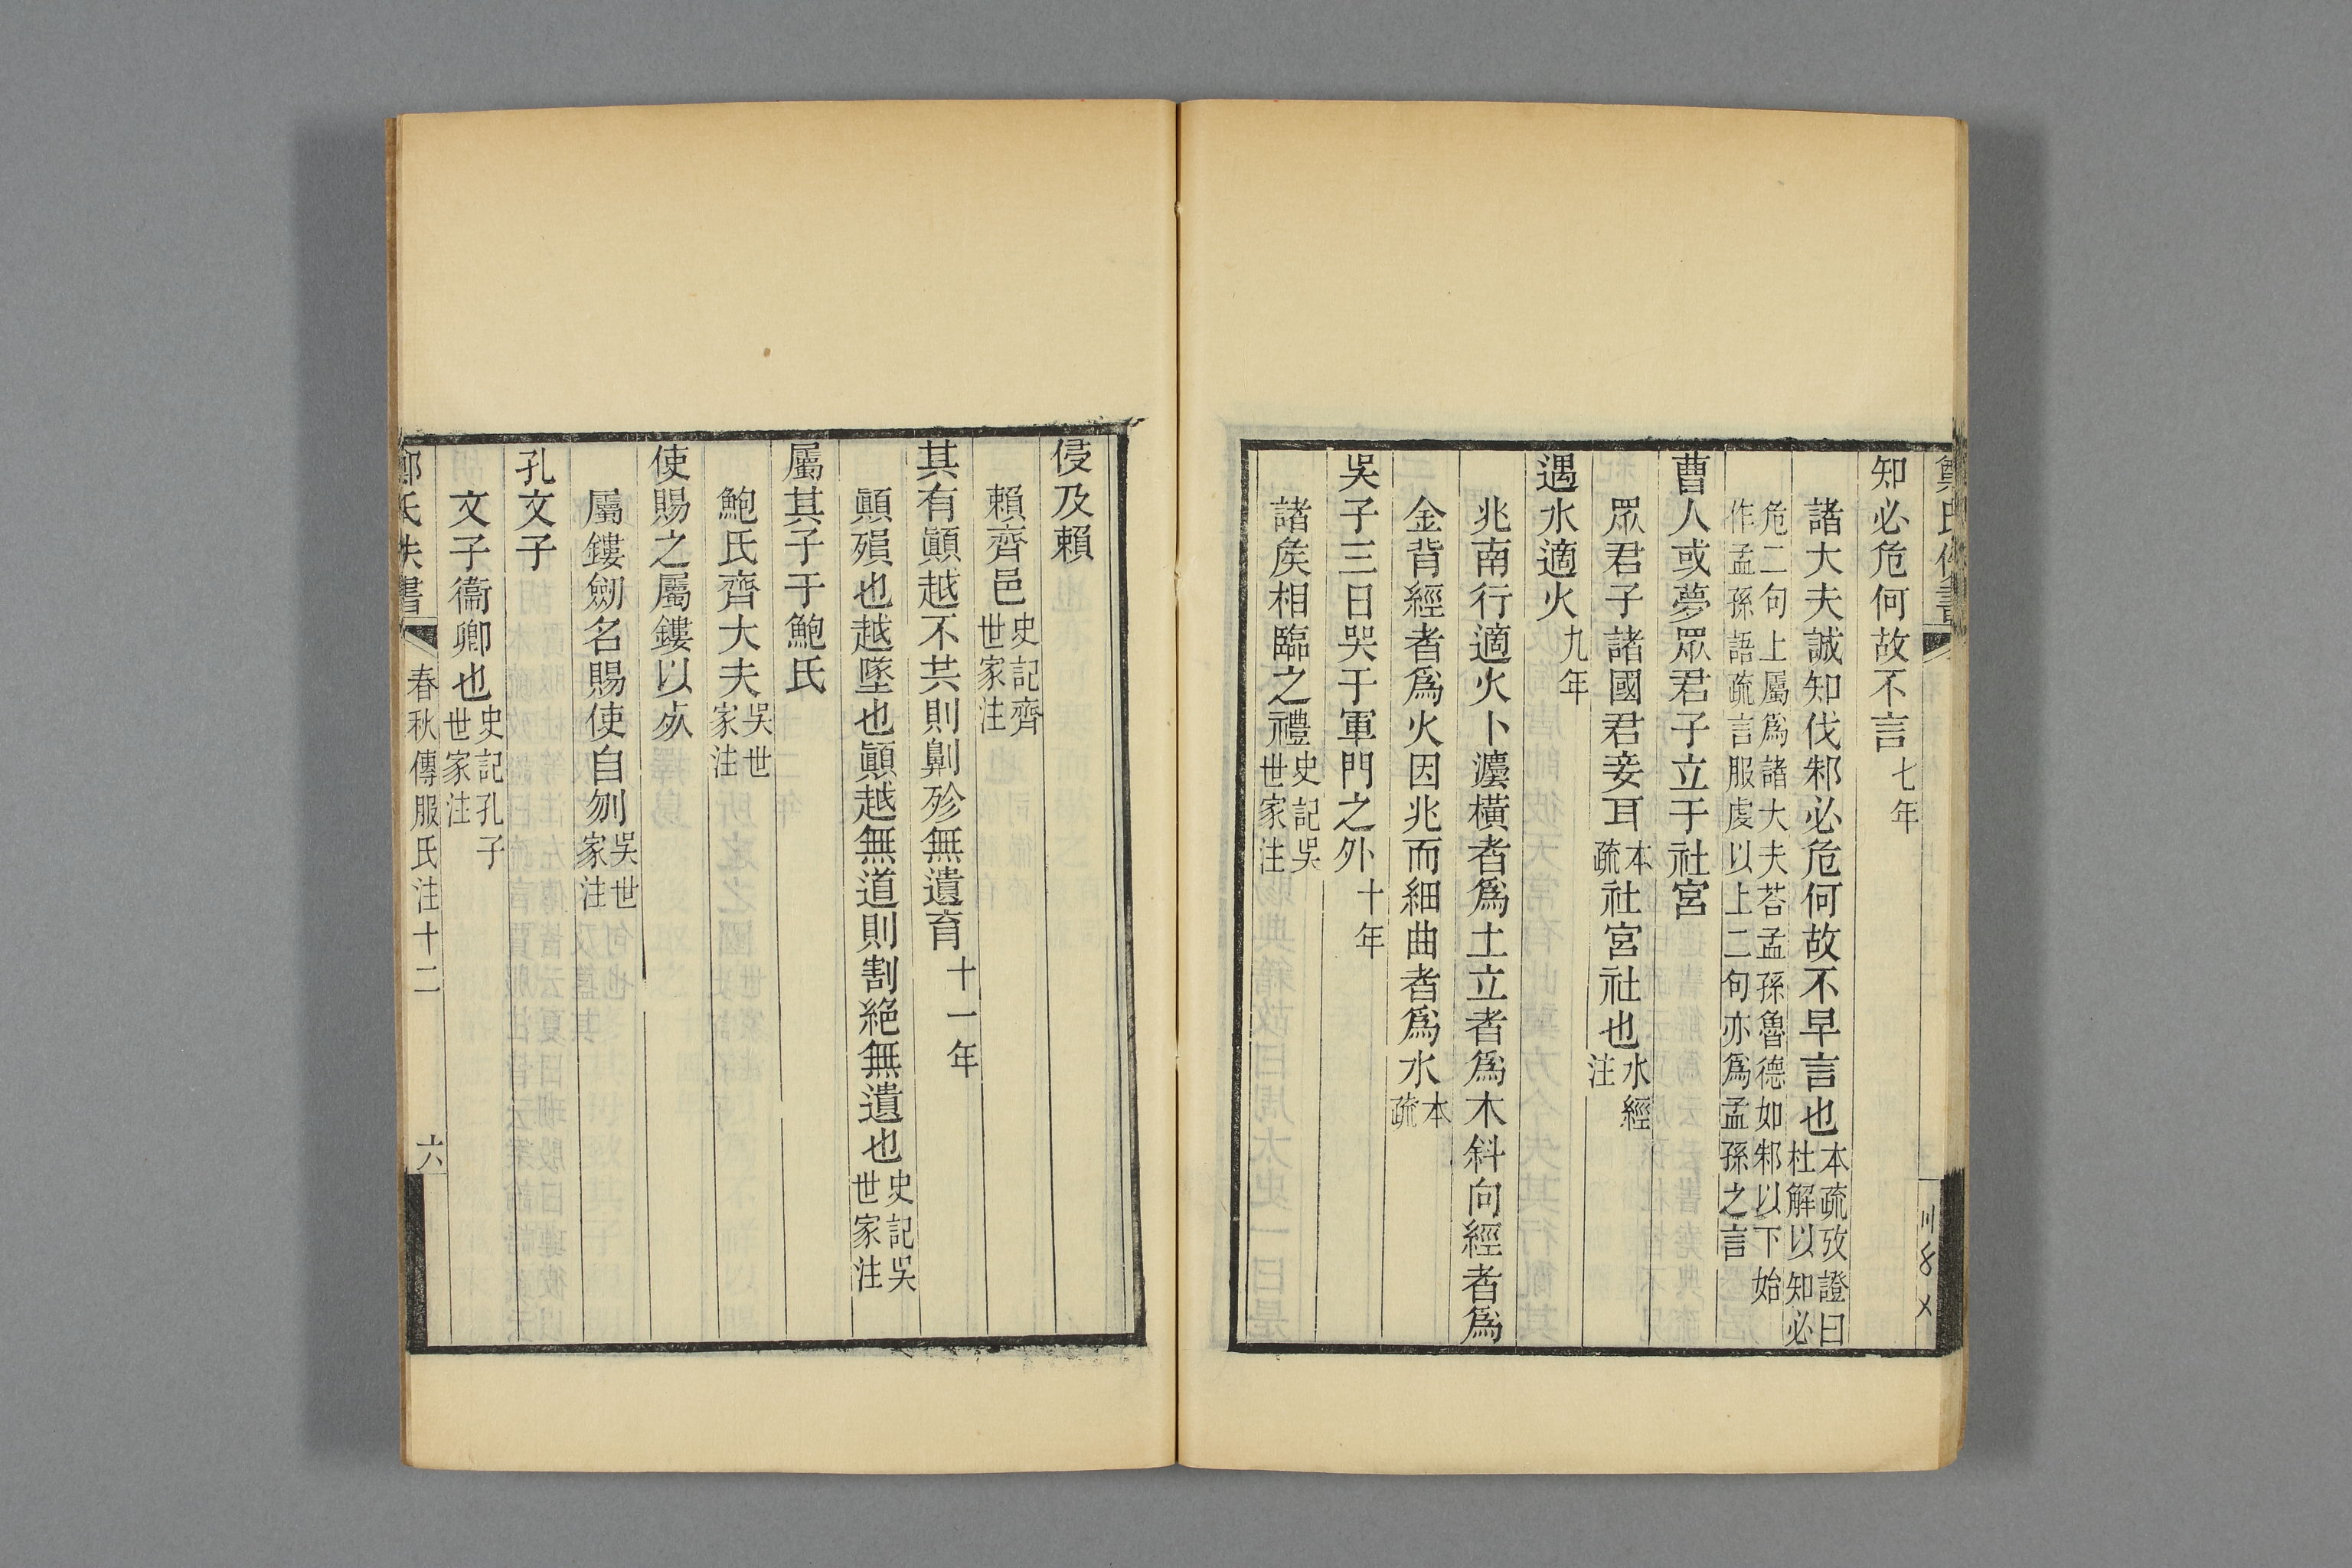 知必危何故不言七年
諸大夫誠知伐邾必危何故不早言也本疏攷證曰杜解以知必
危二句上屬爲諸大夫荅孟孫魯德如邾以下始作孟孫語疏言服虔以上二句亦爲孟孫之言
曹人或夢眾君子立于社宮
眾君子諸國君妾耳本疏社宮社也水經注
遇水適火九年
兆南行適火卜灋橫者爲土立者爲木斜向經者爲
金背經者爲火因兆而細曲者爲水本疏
吳子三日哭于軍門之外十年
諸矦相臨之禮史記吳世家注
侵及賴
賴齊邑史記齊世家注
其有顚越不共則劓殄無遺育十一年
顚殞也越墜也顚越無道則割絕無遺也史記吳世家注
屬其子于鮑氏
鮑氏齊大夫吳世家注
使賜之屬鏤以𣦸
屬鏤劒名賜使自刎吳世家注
孔文子
文子衞卿也史記孔子世家注
鄭氏佚書 春秋傳服氏注十二 六